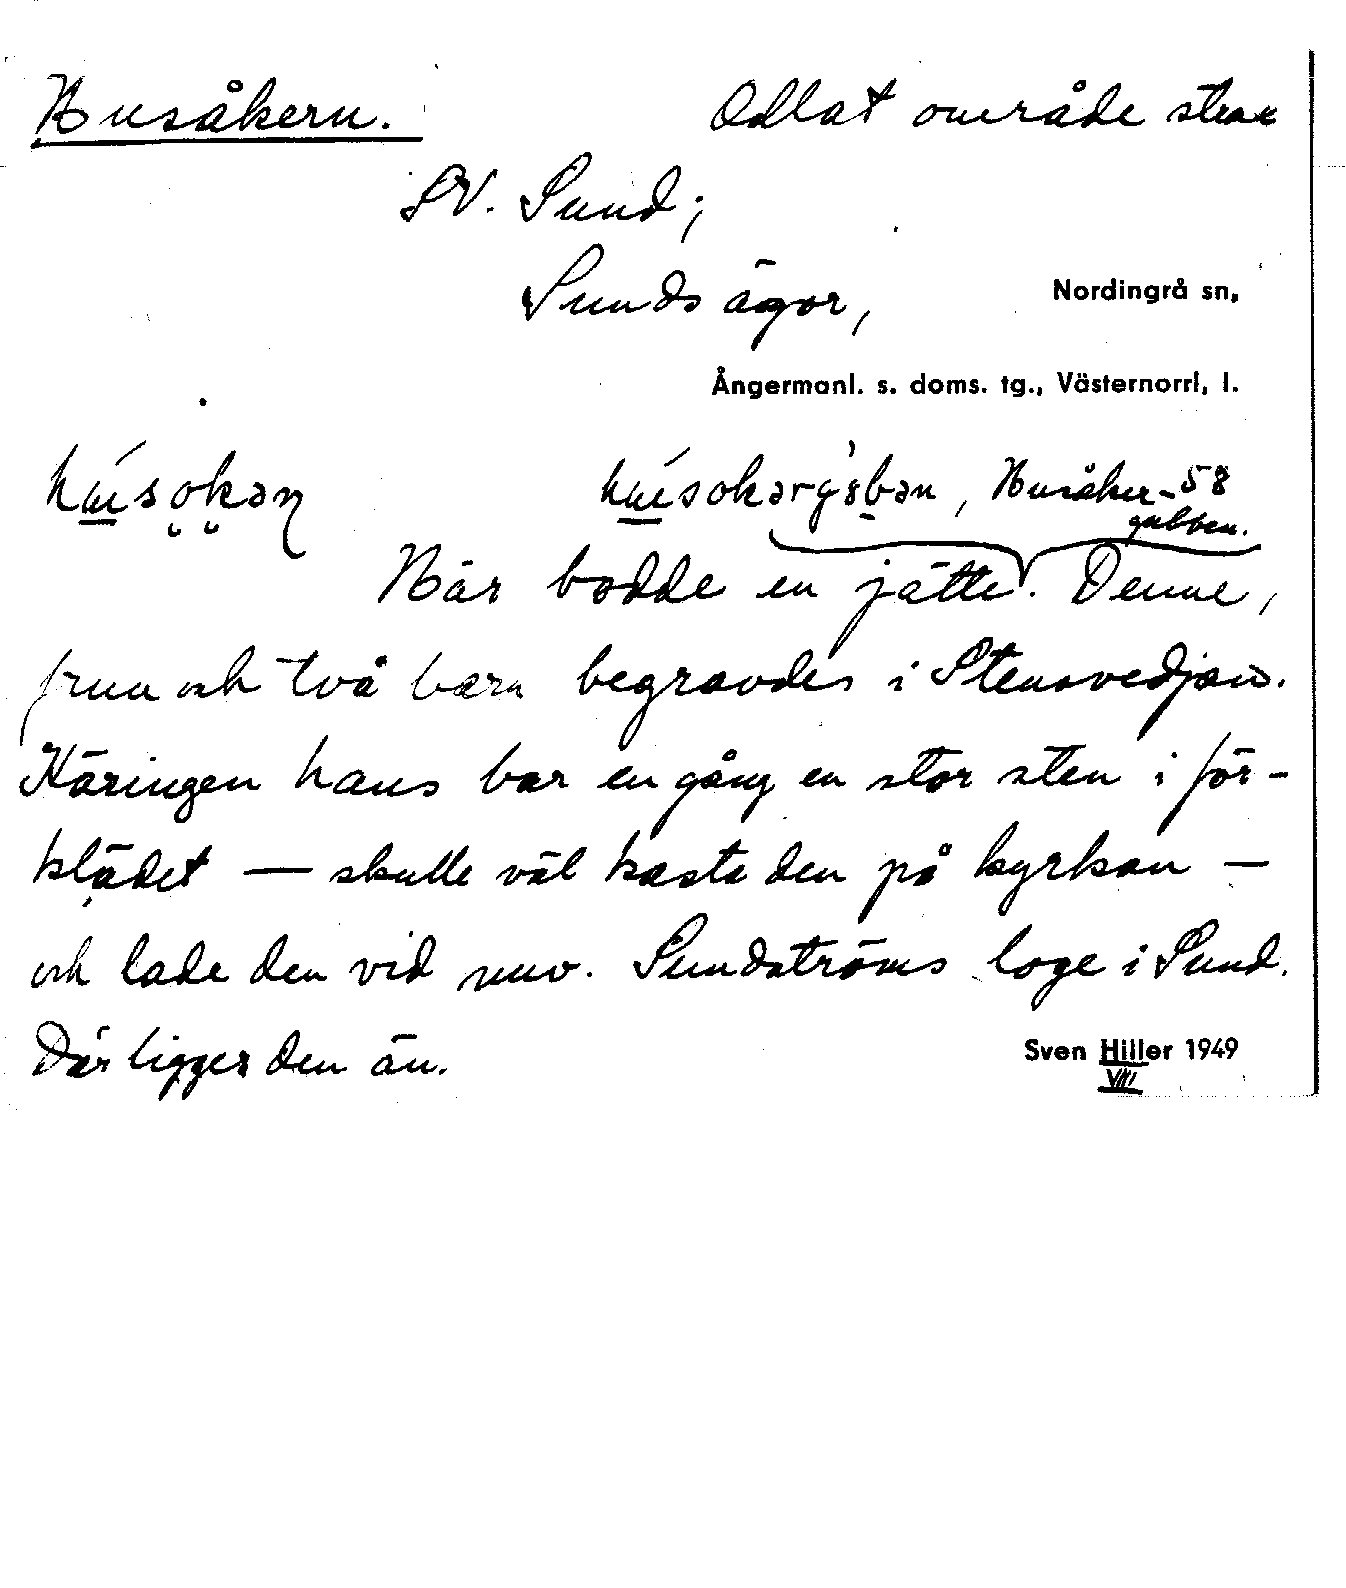 Husåkern. Odlat område strax
SV. Sund;
Sunds ägor, Nordingrå sn,
Ångermanl. s. doms. tg., Västernorrl. l.
Husåker-58
gubben.
Här bodde en jätte. Denne,
frun och två barn begravdes i Stensvedjan.
Käringen hans bar en gång en stor sten i för-
klädet — skulle väl kasta den på kyrkan —
och lade den vid nuv. Sundströms loge i Sund.
Där ligger den än. Sven Hiller 1949
VIII